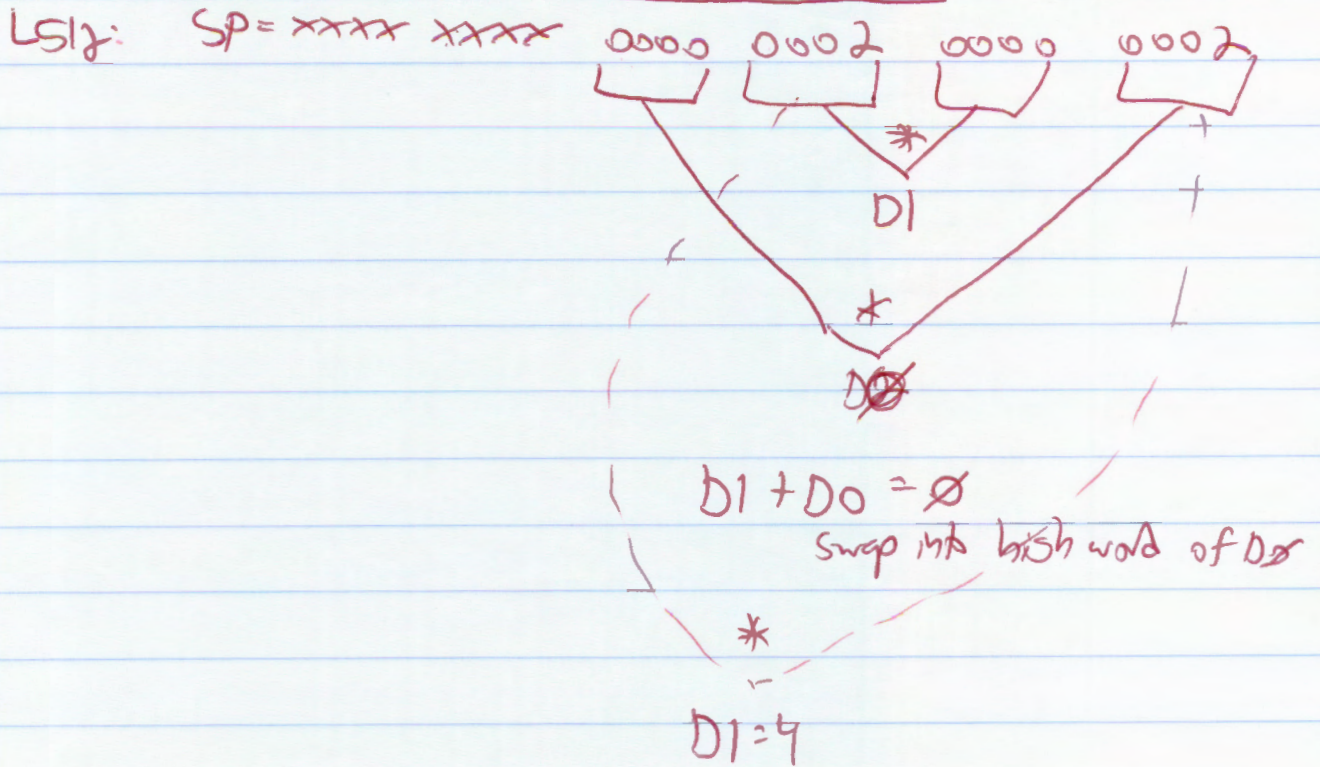 LSlz: SP= xxxx xxxx 0000 0002 0000 0002
*
D1
*
D0
D1 + D0 = Ø
swap into high word of DØ
*
D1=4